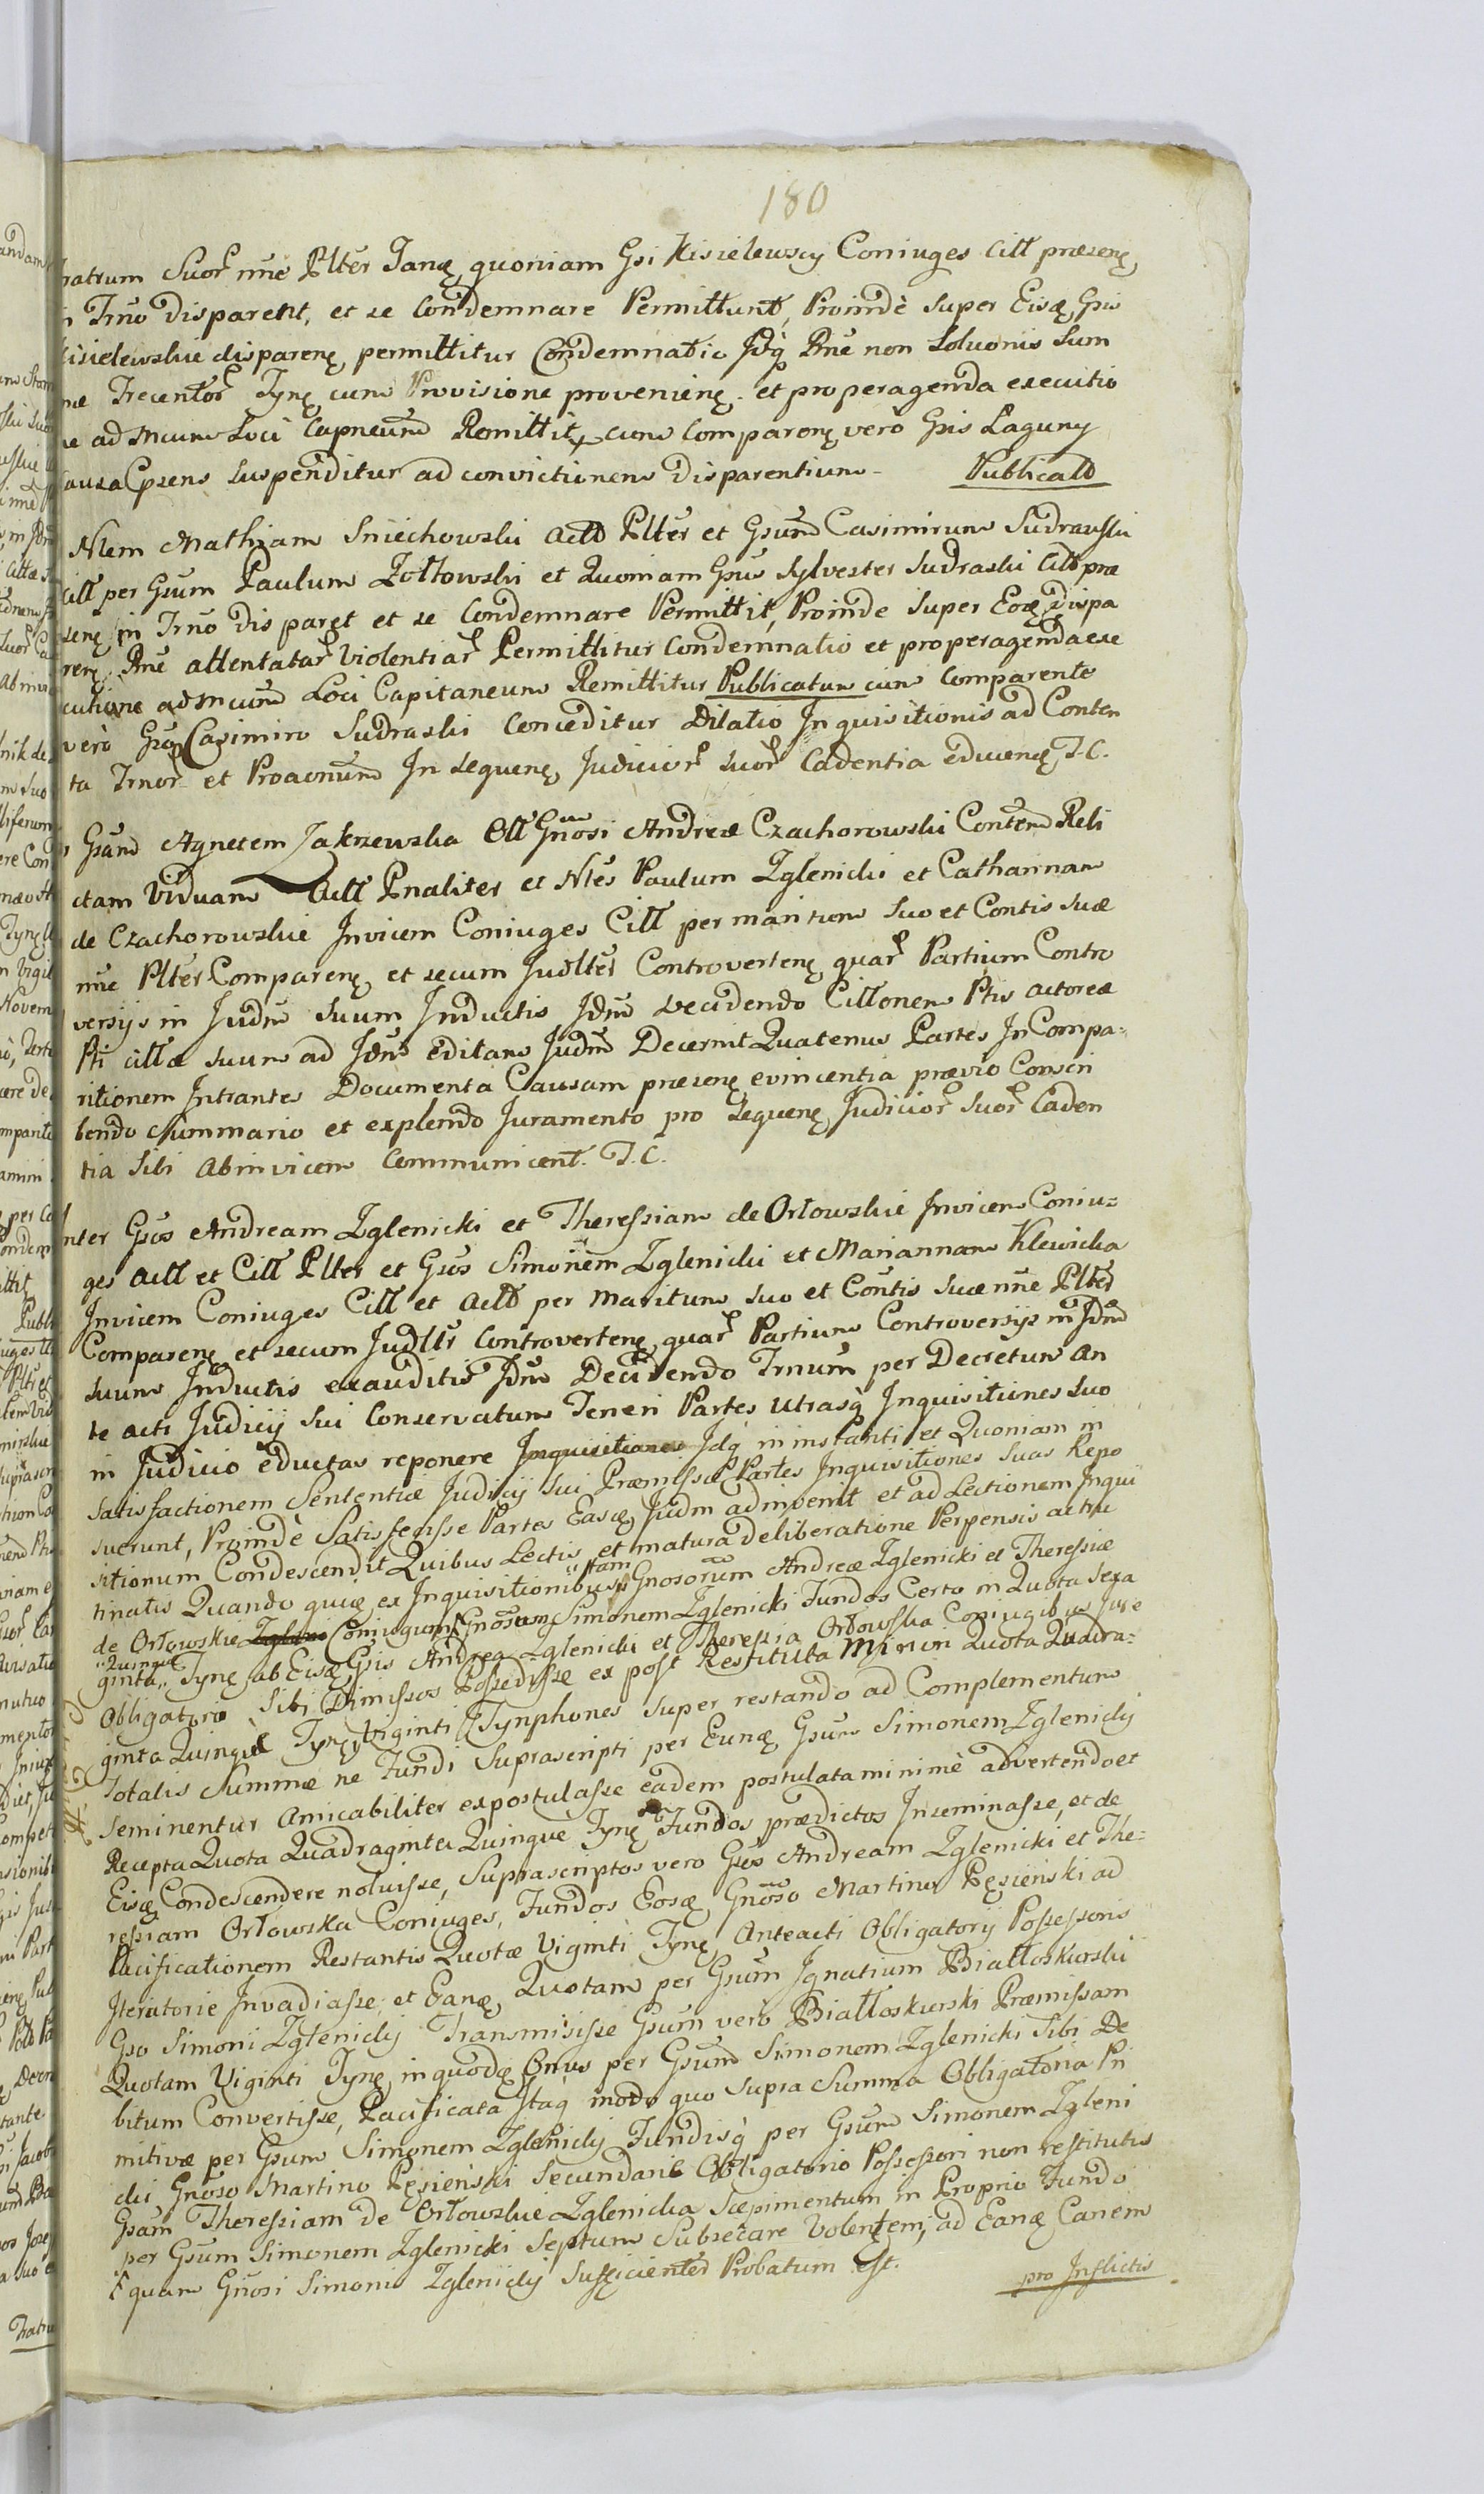 180
Fratrum Suor nne Plter Tanq quoniam Gsi Kisielewscy Coniuges Citt præsenq
in Trno disparent, et se Condemnare Permittunt, Proindè super Eisq Gsis
Kisielewskie disparenq permittitur Condemnatio Jdq Rne non Solvonis Sum
mæ Trecentor Tynq cum Provisione provenienq et pro peragenda executio
ne ad Mcum Loci Capneum Remittit cum Comparenq verò Gsis Laguny
Causa Cpsens suspenditur ad convictionem disparentium Publicatt
Nlem Mathiam Sniechowski Actt Plter et Gsum Casimirum Sudrawski
Citt per Gsum Paulum Zołtowski et Quoniam Gsus Sylvester Sudraski Citt præ
senq in Trno disparet et se Condemnare Permittit, Proinde super Eoq dispa
renq Rne attentatar Violentiar Permittitur Condemnatio et pro peragenda exe
cutione ad Mcum Loci Capitaneum Remittitur Publicatum cum Comparente
verò Gso Casimiro Sudraski Conceditur Dilatio Inquisitionis ad Conten
ta Trnor et Proaonum In sequenq Judicior suor Cadentia educenq T.C.
Gsam Agnetem Zakrzewska Ott Gnosi Andreæ Czachorowski Contem Reli
ctam Viduam Actt Pnaliter et Nles Paulum Zglenicki et Catharinam
de Czachorowskie Invicem Coniuges Citt per maritum suo et Contis suæ
nne Plter Comparenq et secum Judlter Controvertenq quar Partium Contro
versijs in Judm suum Inductis Jdm Decidendo Cittonem Ptis actoreæ
Pti cittæ suum ad Jdm editam Judm Decernit Quatenus Partes In Compa-
ritionem Intrantes Documenta Causam præsenq evincentia prævio Conscri
bendo Summario et explendo Juramento pro sequenq Judicior suor Caden
tia Sibi abinvicem Communicent. T.C.
Inter Gsos Andream Zglenicki et Theressiam de Orłowskie Invicem Coniu-
ges Actt et Citt Plter et Gsos Simonem Zglenicki et Mariannam Klewicka
Invicem Coniuges Citt et Actt per Maritum suo et Contis suæ nne Plter
Comparenq et secum Judlter Controvertenq quar Partium Controversijs in Jdm
suum Inductis exauditis Jdm Decidendo Trnum per Decretum an
te acti Judicij sui Conservatum Teneri Partes utrasq Inquisitiones suo
in Judicio eductas reponere Inquisitiones Jdq in instanti et Quoniam in
satisfactionem Sententiæ Judicij sui Præmissæ Partes Inquisitiones suas Repo
suerunt, Proindè Satisfecisse Partes Easq Judm adinvenit et ad Lectionem Inqui
sitionum Condescendit Quibus Lectis et matura deliberatione Perpensis ac tru
tinatis Quando quiq ex Inquisitionibus tam Gnosorum Andreæ Zglenicki et Theressiæ
de Orłowskie Coniugum Gnosum Simonem Zglenicki Fundos Certo in Quota sexa
ginta Quinque Tynq ab Eisq Gsis Andrea Zglenicki et Theressia Orłowska Coniugibus Jure
Obligatorio Sibi Dimissos Possedisse ex post Restituta Minori Quota Quadra-
ginta Quinque Tynq Viginti Tynphones super restando ad Complementum
Totalis Summæ ne Fundi Suprascripti per Eunq Gsum Simonem Zglenicky
Seminentur Amicabiliter expostulasse eadem postulata minimè advertendo et
Recepta Quota Quadraginta Quinque Tynq Fundos prædictos Inseminasse, et de
Eisq Condescendere noluisse, Suprascriptos vero Gsos Andream Zglenicki et The-
ressiam Orłowska Coniuges, Fundos Eosq Gnoso Martino Pęsieński ad
Pacificationem Restantis Quotæ Viginti Tynq Anteacti Obligatorij Possessoris
Iteriatorie Invadiasse, et Eanq Quotam per Gsum Ignatium Białłoskurski
Gso Simoni Zglenicky Transmisisse Gsum verò Białłoskurski Præmissam
Quotam Viginti Tynq in quodq Onus per Gsum Simonem Zglenicki Sibi De
bitum Convertisse, Pacificata Itaq modo quo supra Summa Obligatoria Pri
mitivæ per Gsum Simonem Zglenicky Fundisq per Gsum Simonem Zgleni
cki Gnoso Martino Pęsieński Secundario Obligatorio Possessori non restitutis
Gsam Theressiam de Orłowskie Zglenicka Sæpimentum in Proprio Fundo
per Gsum Simonem Zglenicki Septum Subsecare Volentem, ad Eanq Canem
quam Gnosi Simonis Zglenicky Sufficienter Probatum Est.
pro Inflictis